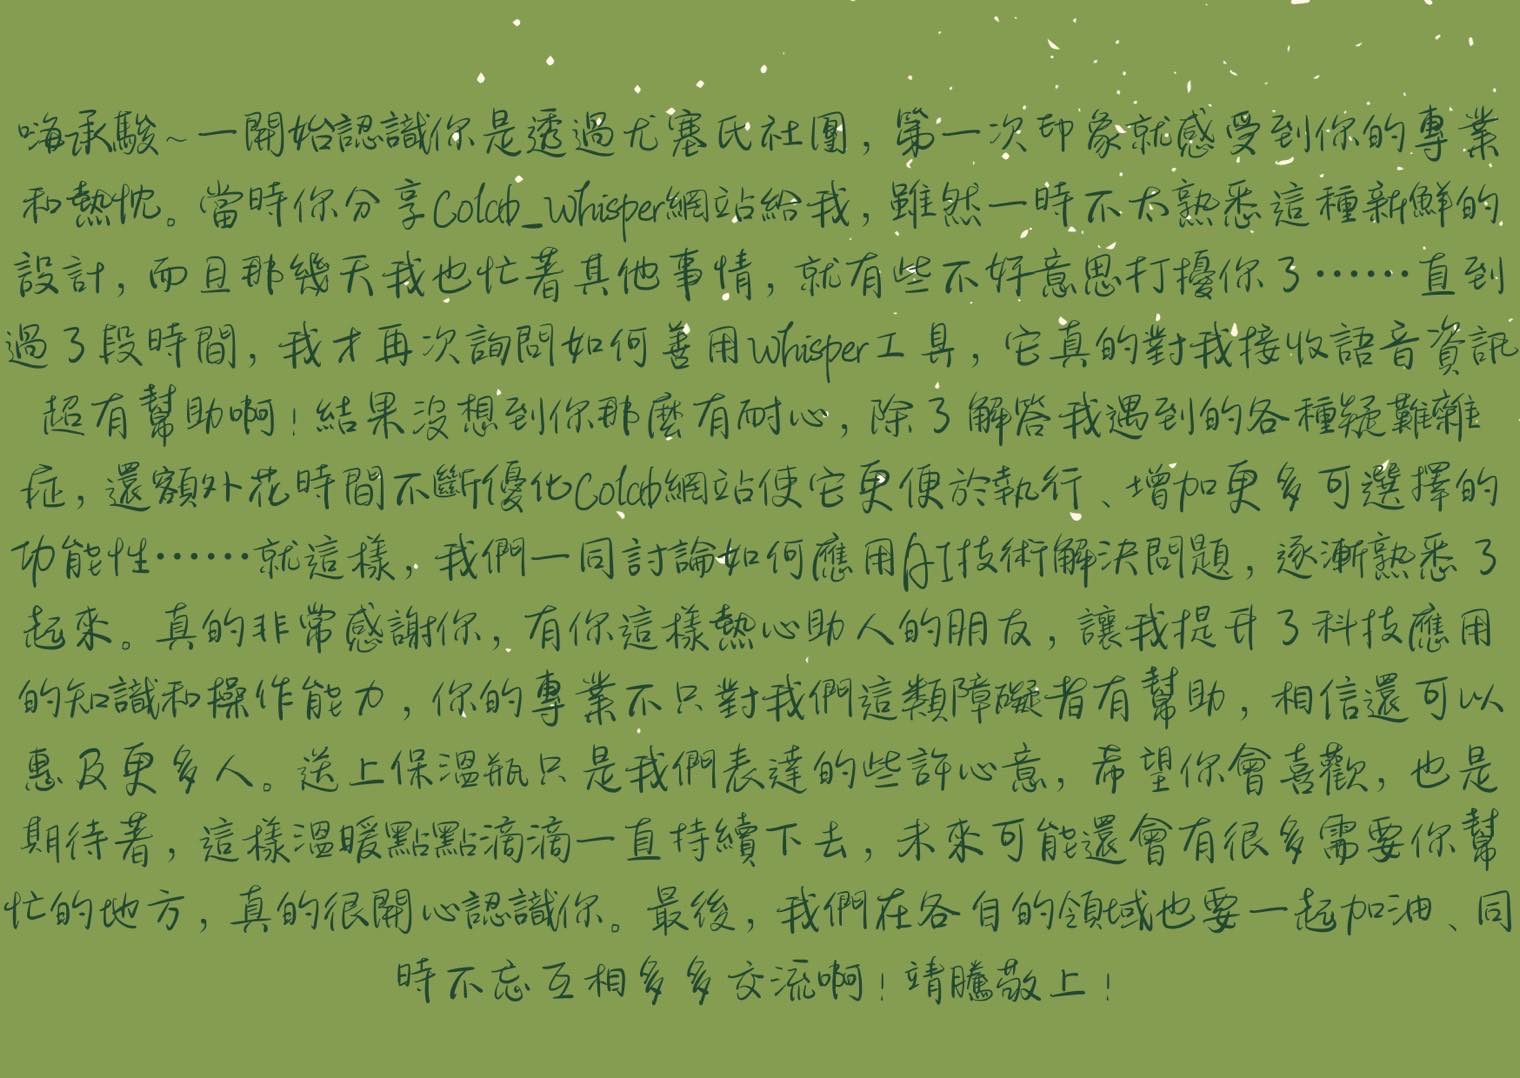 嗨承駿~一開始認識你是透過尤塞氏社團，第一次印象就感受到你的專業
和熱忱。當時你分享Colab_Whisper網站給我，雖然一時不太熟悉這種新鮮的
設計，而且那幾天我也忙著其他事情，就有些不好意思打擾你了……直到
過了段時間，我才再次詢問如何善用Whisper工具，它真的對我接收語音資訊
超有幫助啊！結果沒想到你那麼有耐心，除了解答我遇到的各種疑難雜
症，還額外花時間不斷優化Colab網站使它更便於執行、增加更多可選擇的
功能性……就這樣，我們一同討論如何應用AI技術解決問題，逐漸熟悉了
起來。真的非常感謝你，有你這樣熱心助人的朋友，讓我提升了科技應用
的知識和操作能力，你的專業不只對我們這類障礙者有幫助，相信還可以
惠及更多人。送上保溫瓶只是我們表達的些許心意，希望你會喜歡，也是
期待著，這樣溫暖點點滴滴一直持續下去，未來可能還會有很多需要你幫
忙的地方，真的很開心認識你。最後，我們在各自的領域也要一起加油、同
時不忘互相多多交流啊！靖騰敬上！